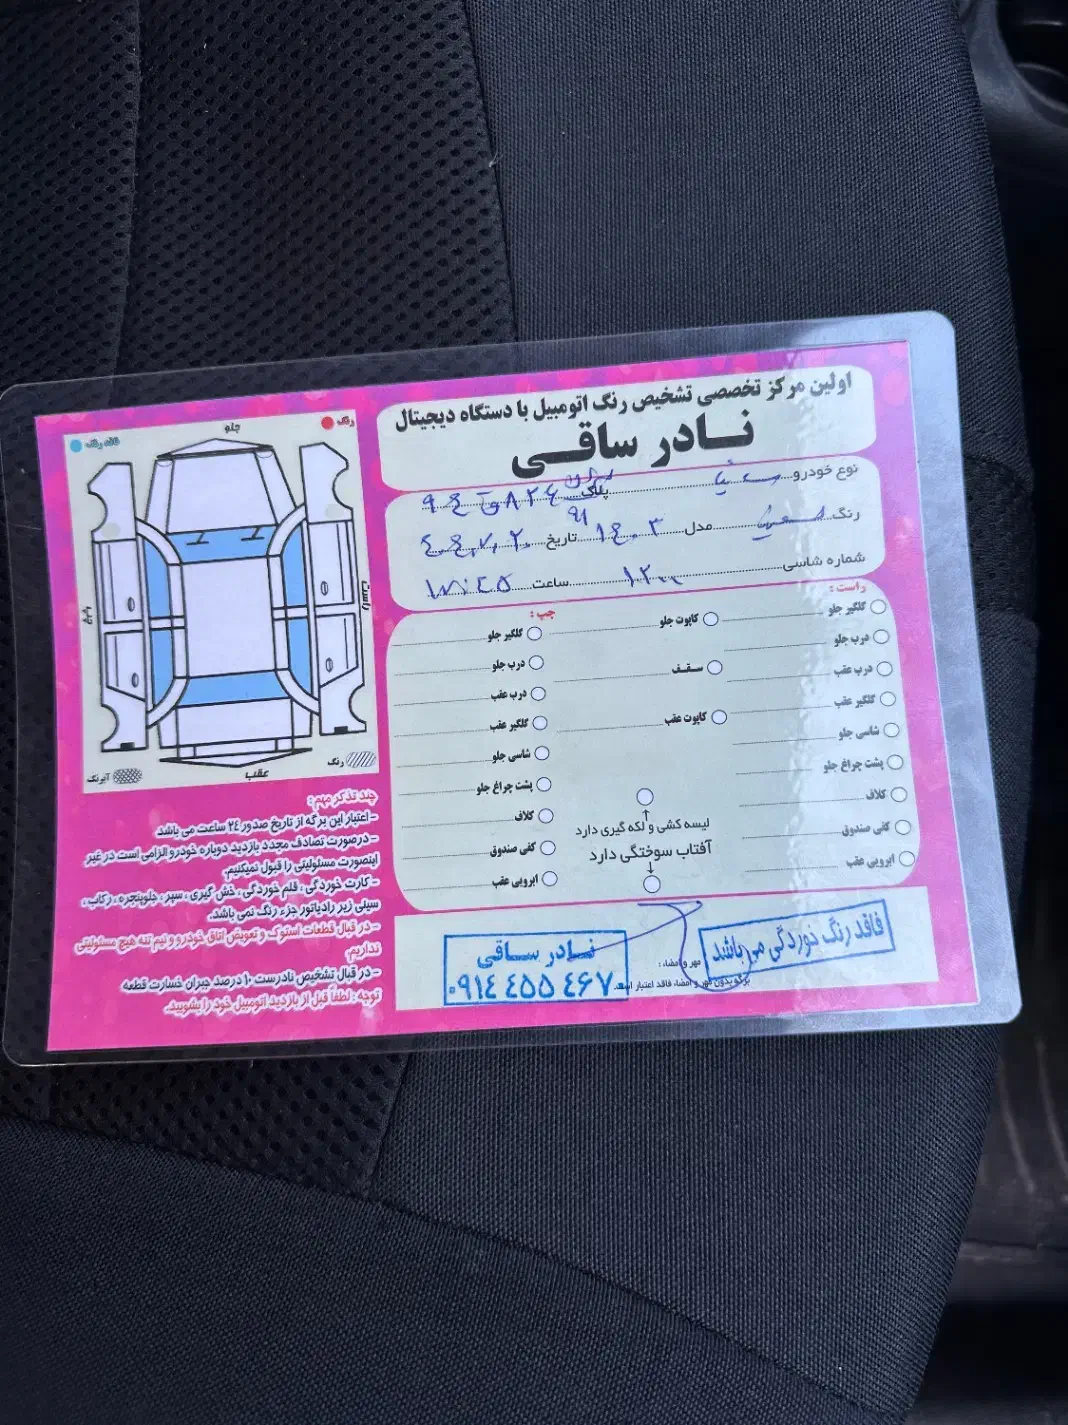 اولین مرکز تخصصی تشخیص رنگ اتومبیل با دستگاه دیجیتال
نادر ساقی
نوع خودرو ساینا پلاک
رنگ سفید مدل ۱۴۰۳ تاریخ
شماره شاسی ساعت ۱۷:۴۵
راست :
گلگیر جلو
درب جلو
درب عقب
گلگیر عقب
شاسی جلو
پشت چراغ جلو
کلاف
کفی صندوق
ابرویی عقب
کاپوت جلو
سقف
کاپوت عقب
لیسه کشی و لکه گیری دارد
آفتاب سوختگی دارد
چپ :
گلگیر جلو
درب جلو
درب عقب
گلگیر عقب
شاسی جلو
پشت چراغ جلو
کلاف
کفی صندوق
ابرویی عقب
فاقد رنگ خوردگی می باشد
مهر و امضاء :
برگه بدون مهر و امضاء فاقد اعتبار است
نادر ساقی
۰۹۱۴ ۴۵۵ ۴۶۷۰
رنگ
فاقد رنگ
جلو
راست
چپ
عقب
رنگ
آبرنگ
چند تذکر مهم :
- اعتبار این برگه از تاریخ صدور ۲٤ ساعت می باشد
- درصورت تصادف مجدد بازدید دوباره خودرو الزامی است در غیر
اینصورت مسئولیتی را قبول نمیکنیم.
- کارت خوردگی ، قلم خوردگی ، خش گیری ، سپر ، جلوپنجره ، رکاب ،
سینی زیر رادیاتور جزء رنگ نمی باشد.
- در قبال قطعات استوک و تعویض اتاق خودرو و نیم تنه هیچ مسئولیتی
نداریم.
- در قبال تشخیص نادرست ۱۰ درصد جبران خسارت قطعه
توجه : لطفاً قبل از بازدید اتومبیل خود را بشویید.